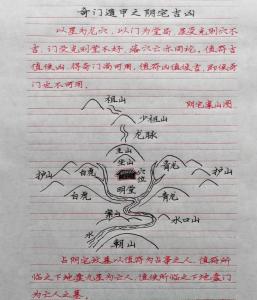 奇门遁甲之阴宅吉凶
以星为龙穴，以门为堂局，星受克则穴不
吉，门受克则堂不好，落穴之亦同论，值符吉
值使凶，得奇门尚可用，值符凶值使吉，即使奇
门也不可用。
阴宅寨山图
祖山
少祖山
龙脉
主山
坐山
护山 白虎 穴位 青龙 护山
白虎 明堂 青龙
案山 水口山
水
朝山
占阴宅故墓以值符为占事之人，值符所
临之下地盘九星为亡人，值使所临之下地盘门
为亡人之墓。